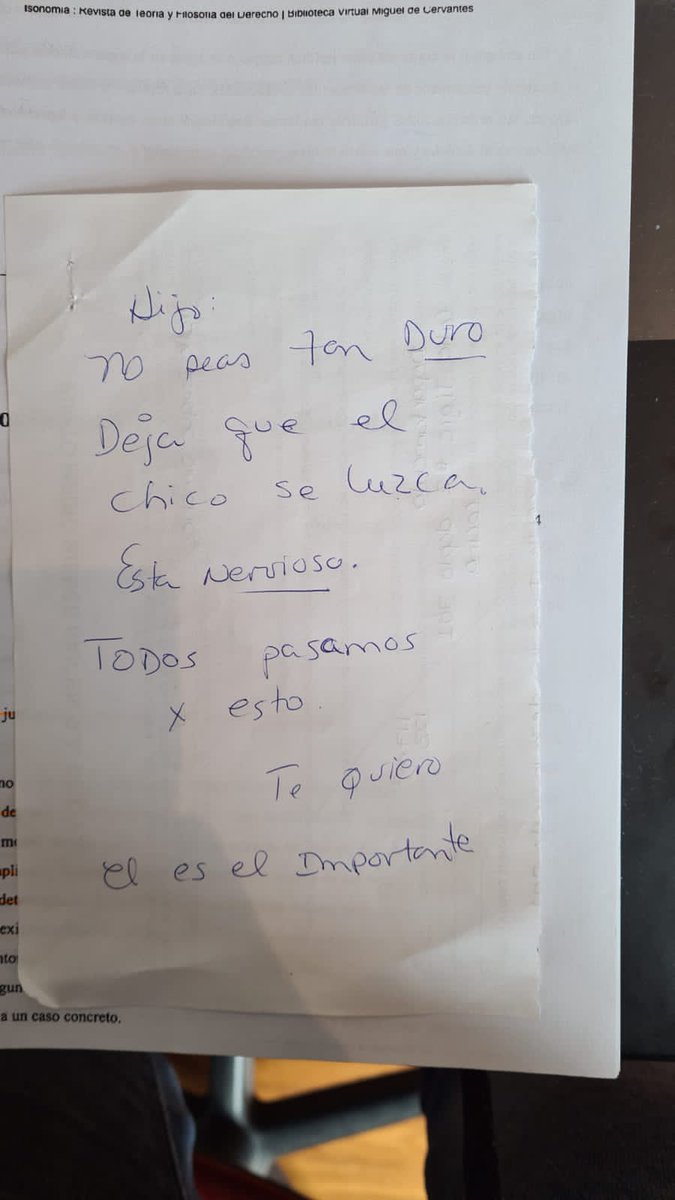 Isonomía : Revista de Teoría y Filosofía del Derecho | Biblioteca Virtual Miguel de Cervantes
Hijo:
no seas tan Duro
Deja que el
chico se luzca.
Esta Nervioso.
Todos pasamos
x esto.
Te quiero
el es el Importante
ju
no
de
me
apli
det
exi
nto
gun
a un caso concreto.